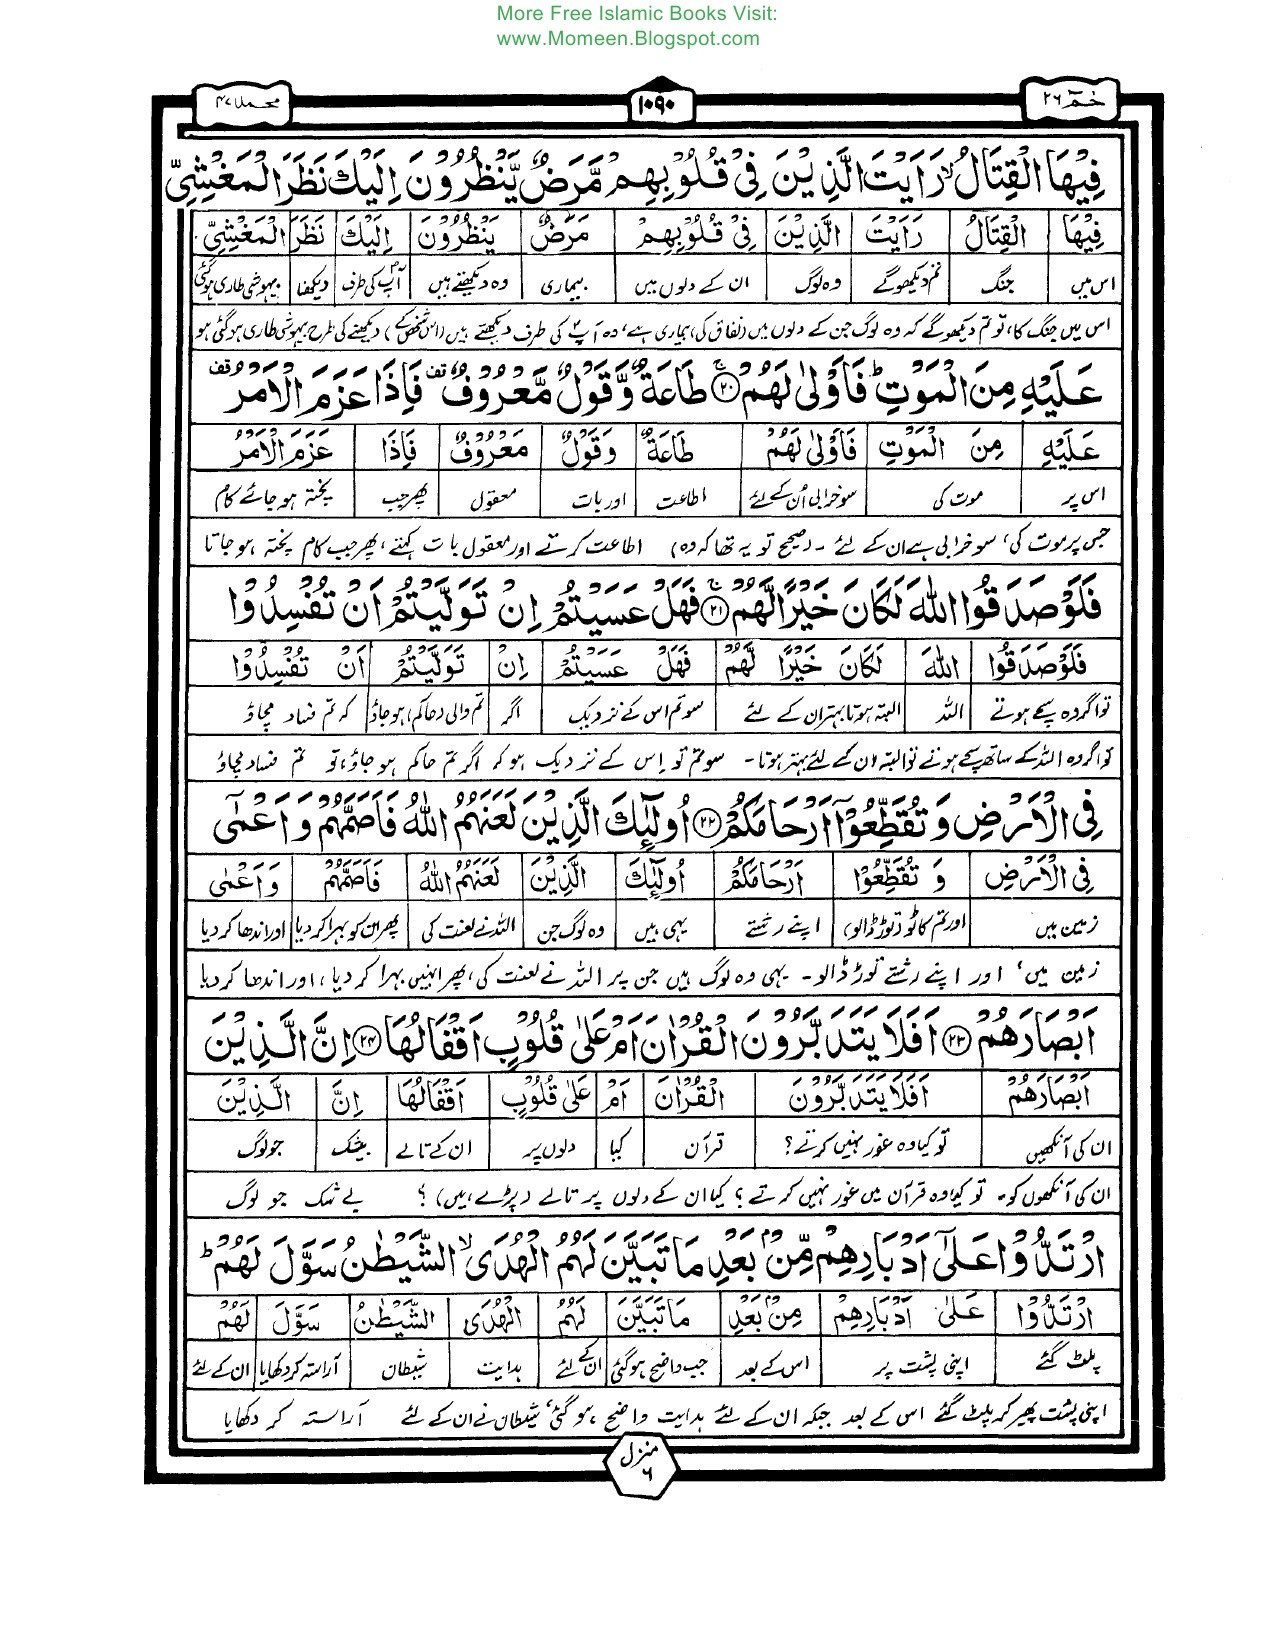 More Free Islamic Books Visit:
www.Momeen.Blogspot.com
حٰمٓ ۲۶
۱۰۹۰
محمد ۴۷
فِيْهَا الْقِتَالُ ۙ رَاَيْتَ الَّذِيْنَ فِيْ قُلُوْبِهِمْ مَّرَضٌ يَّنْظُرُوْنَ اِلَيْكَ نَظَرَ الْمَغْشِيِّ
فِيْهَا الْقِتَالُ رَاَيْتَ الَّذِيْنَ فِيْ قُلُوْبِهِمْ مَرَضٌ يَنْظُرُوْنَ اِلَيْكَ نَظَرَ الْمَغْشِيِّ
اس میں جنگ تم دیکھو گے وہ لوگ ان کے دلوں میں بیماری وہ دیکھتے ہیں آپ کی طرف دیکھنا بیہوشی طاری ہو گئی
اس میں جنگ کا، تو تم دیکھو گے کہ وہ لوگ جن کے دلوں میں (نفاق کی) بیماری ہے، وہ آپ کی طرف دیکھتے ہیں (اس شخص کے) دیکھنے کی طرح بیہوشی طاری ہو گئی ہو
عَلَيْهِ مِنَ الْمَوْتِ ؕ فَاَوْلٰى لَهُمْ ۚ ۲۰ طَاعَةٌ وَّقَوْلٌ مَّعْرُوْفٌ ۟ فَاِذَا عَزَمَ الْاَمْرُ ۟
عَلَيْهِ مِنَ الْمَوْتِ فَاَوْلٰى لَهُمْ طَاعَةٌ وَقَوْلٌ مَعْرُوْفٌ فَاِذَا عَزَمَ الْاَمْرُ
اس پر موت کی سو خرابی اُن کے لئے اطاعت اور بات معقول پھر جب پختہ ہو جائے کام
جس پر موت کی، سو خرابی ہے ان کے لئے ۔ (صحیح تو یہ تھا کہ وہ) اطاعت کرتے اور معقول بات کہتے، پھر جب کام پختہ ہو جاتا
فَلَوْ صَدَقُوا اللّٰهَ لَكَانَ خَيْرًا لَّهُمْ ۚ ۲۱ فَهَلْ عَسَيْتُمْ اِنْ تَوَلَّيْتُمْ اَنْ تُفْسِدُوْا
فَلَوْ صَدَقُوا اللّٰهَ لَكَانَ خَيْرًا لَّهُمْ فَهَلْ عَسَيْتُمْ اِنْ تَوَلَّيْتُمْ اَنْ تُفْسِدُوْا
تو اگر وہ سچے ہوتے اللہ البتہ ہوتا بہتر ان کے لئے سو تم اس کے نزدیک اگر تم والی (حاکم) ہو جاؤ کہ تم فساد مچاؤ
تو اگر وہ اللہ کے ساتھ سچے ہوتے تو البتہ ان کے لئے بہتر ہوتا ۔ سو تم تو اس کے نزدیک ہو کہ اگر تم حاکم ہو جاؤ، تو تم فساد مچاؤ
فِى الْاَرْضِ وَ تُقَطِّعُوْٓا اَرْحَامَكُمْ ۲۲ اُولٰٓئِكَ الَّذِيْنَ لَعَنَهُمُ اللّٰهُ فَاَصَمَّهُمْ وَاَعْمٰٓى
فِى الْاَرْضِ وَ تُقَطِّعُوْٓا اَرْحَامَكُمْ اُولٰٓئِكَ الَّذِيْنَ لَعَنَهُمُ اللّٰهُ فَاَصَمَّهُمْ وَاَعْمٰٓى
زمین میں اور تم کاٹو (توڑ ڈالو) اپنے رشتے یہی ہیں وہ لوگ جن اللہ نے لعنت کی پھر ان کو بہرا کر دیا اور اندھا کر دیا
زمین میں، اور اپنے رشتے توڑ ڈالو ۔ یہی وہ لوگ ہیں جن پر اللہ نے لعنت کی، پھر انہیں بہرا کر دیا، اور اندھا کر دیا
اَبْصَارَهُمْ ۲۳ اَفَلَا يَتَدَبَّرُوْنَ الْقُرْاٰنَ اَمْ عَلٰى قُلُوْبٍ اَقْفَالُهَا ۲۴ اِنَّ الَّذِيْنَ
اَبْصَارَهُمْ اَفَلَا يَتَدَبَّرُوْنَ الْقُرْاٰنَ اَمْ عَلٰى قُلُوْبٍ اَقْفَالُهَا اِنَّ الَّذِيْنَ
ان کی آنکھیں تو کیا وہ غور نہیں کرتے؟ قرآن کیا دلوں پر ان کے تالے بیشک جو لوگ
ان کی آنکھوں کو ۔ تو کیا وہ قرآن میں غور نہیں کرتے؟ کیا ان کے دلوں پر تالے (پڑے ہیں)؟ بے شک جو لوگ
ارْتَدُّوْا عَلٰٓى اَدْبَارِهِمْ مِّنْۢ بَعْدِ مَا تَبَيَّنَ لَهُمُ الْهُدَى ۙ الشَّيْطٰنُ سَوَّلَ لَهُمْ ؕ
ارْتَدُّوْا عَلٰٓى اَدْبَارِهِمْ مِنْۢ بَعْدِ مَا تَبَيَّنَ لَهُمُ الْهُدَى الشَّيْطٰنُ سَوَّلَ لَهُمْ
پلٹ گئے اپنی پشت پر اس کے بعد جب واضح ہو گئی ان کے لئے ہدایت شیطان آراستہ کر دکھایا ان کے لئے
اپنی پشت پھیر کر پلٹ گئے اس کے بعد جبکہ ان کے لئے ہدایت واضح ہو گئی، شیطان نے ان کے لئے آراستہ کر دکھایا
منزل ۶